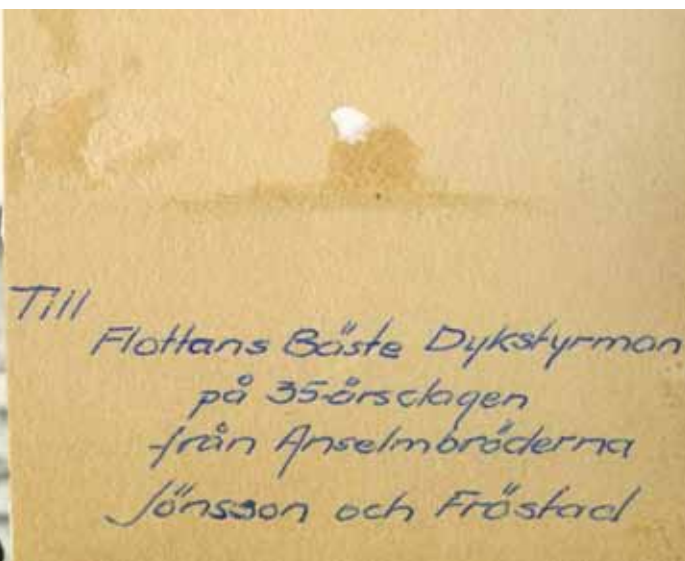 Till
Flottans Bäste Dykstyrman
på 35-årsdagen
från Anselmbröderna
Jönsson och Fröstad